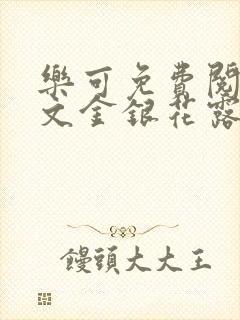 樂可免費閱
文金銀花露
饅頭大大王